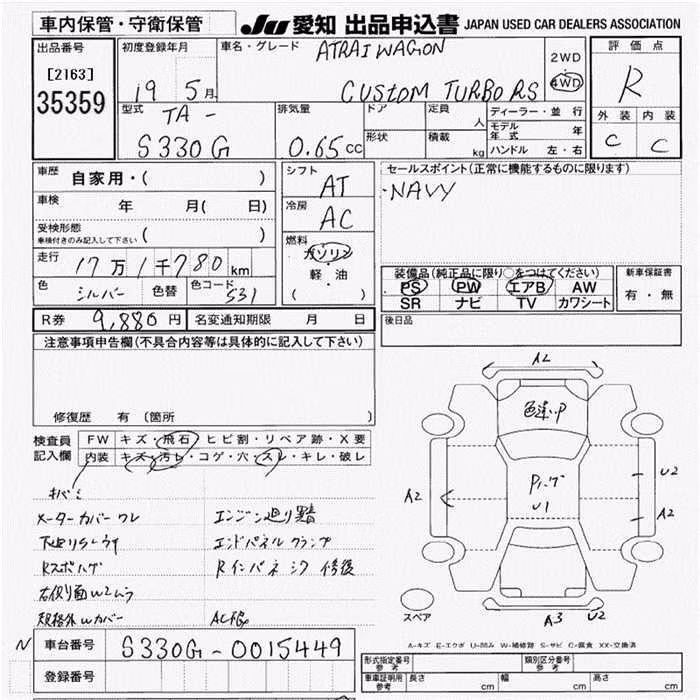 車内保管・守衛保管
JU 愛知 出品申込書 JAPAN USED CAR DEALERS ASSOCIATION
出品番号
[2163]
35359
初度登録年月
19 5月
車名・グレード
ATRAI WAGON
CUSTOM TURBO RS
2WD
4WD
評価点
R
外装 内装
C C
型式
TA-
S330G
排気量
0.65cc
ドア
定員
人
形状
積載
kg
ディーラー・並行
モデル年式 年
ハンドル 左・右
車歴
自家用・( )
車検
年 月( 日)
受検形態
車検付きのみ記入して下さい ( )
走行
17万1千780km
色
シルバー
色替
色コード
S31
シフト
AT
冷房
AC
燃料
ガソリン
軽・油
( )
セールスポイント(正常に機能するものに限ります)
・NAVY
装備品(純正品に限り○をつけてください)
PS PW エアB AW
SR ナビ TV カワシート
新車保証書
有・無
R券 9,880円
名変通知期限 月 日
後日品
注意事項申告欄(不具合内容等は具体的に記入して下さい)
修復歴 有 (箇所
検査員記入欄
FW キズ・飛石・ヒビ割・リペア跡・X要
内装 キズ・汚レ・コゲ・穴・スレ・キレ・破レ
メーターカバーワレ
エンジン廻り錆
エンドパネルクランプ
Rスポハゲ
Rインパネ 修復
右側面W2ムラ
規格外Wカバー
A2
色違いP
Pハゲ
U1
A2
U2
A2
A3 U2
スペア
A-キズ E-エクボ U-凹み W-補修跡 S-サビ C-腐食 XX-交換済
N 車台番号 S330G-0015449
登録番号
形式指定番号 参考
類別区分番号 参考
車庫証明用 参考
長さ cm
幅 cm
高さ cm